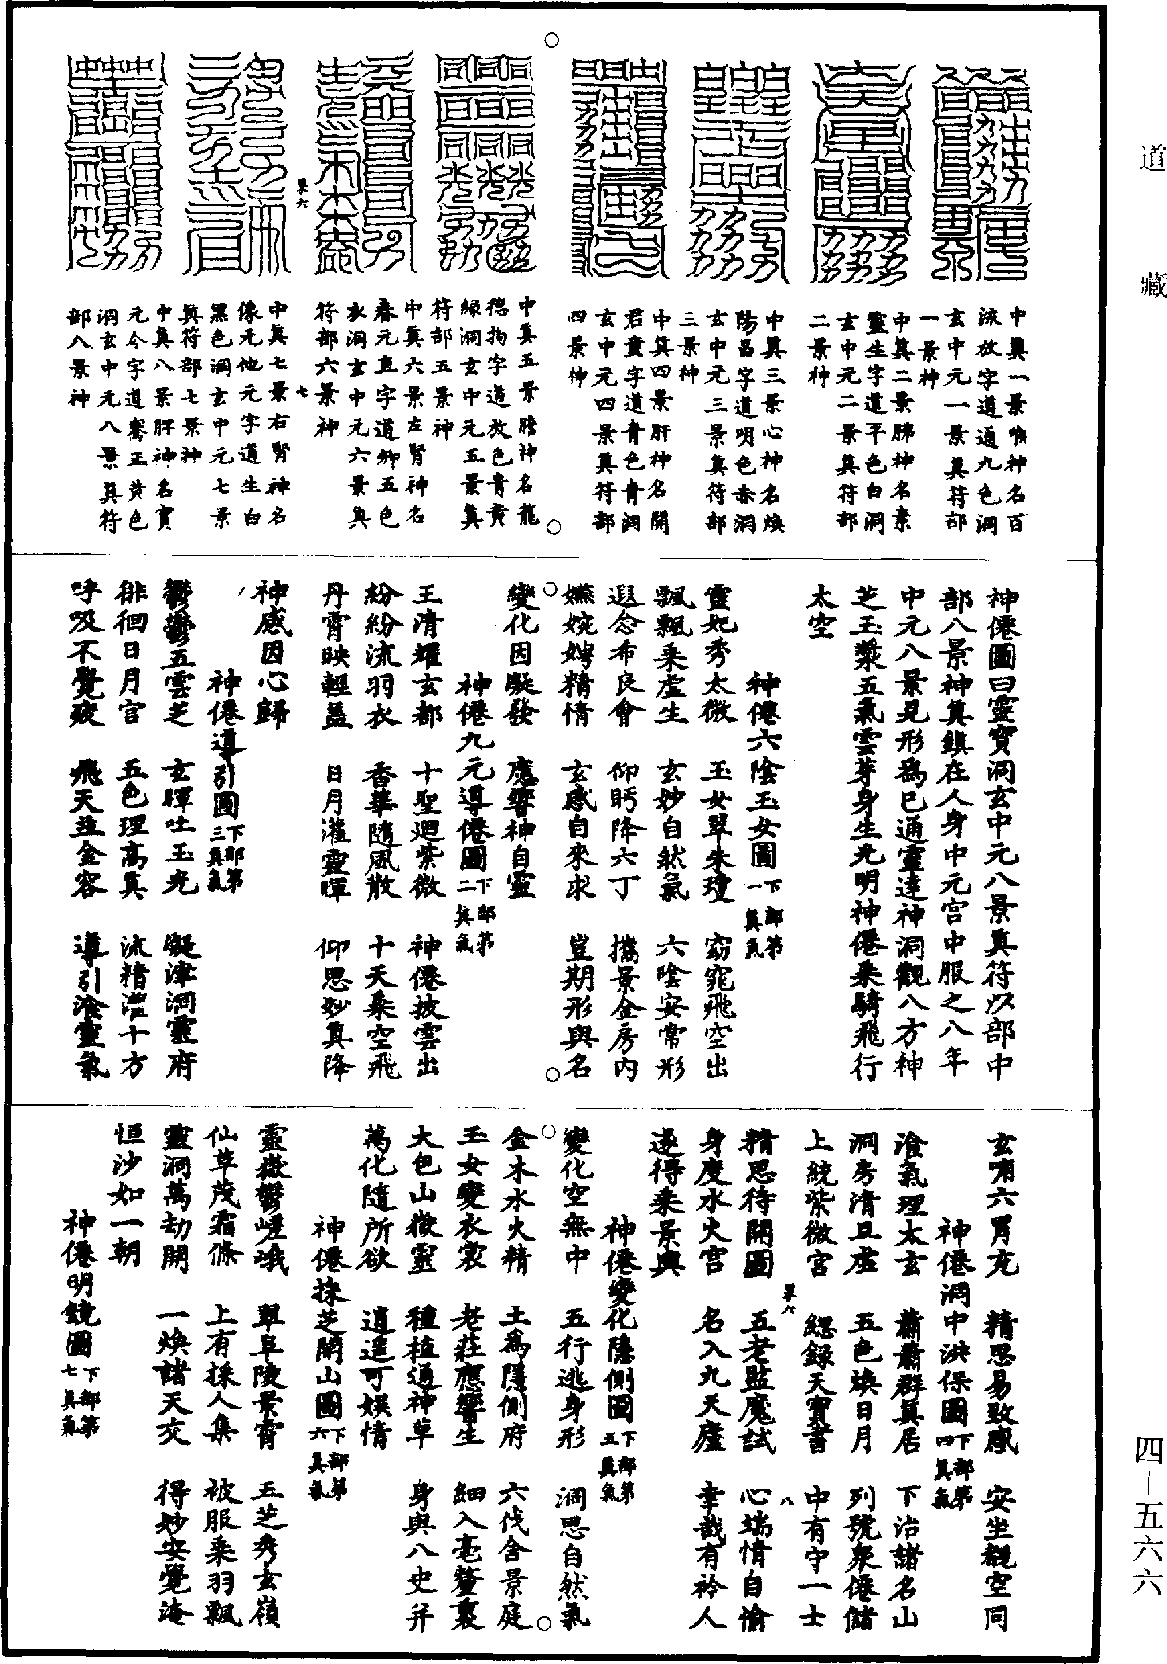 道藏
四—五六六
中真一景喉神名百
流放字道通九色洞
玄中元一景真符部
一景神
中真二景肺神名素
靈生字道平色白洞
玄中元二景真符部
二景神
中真三景心神名煥
陽昌字道明色赤洞
玄中元三景真符部
三景神
中真四景肝神名開
君童字道青色青洞
玄中元四景真符部
四景神
中真五景膽神名龍
德拘字道放色青黃
綠洞玄中元五景真
符部五景神
中真六景左腎神名
春元直字道卿五色
衣洞玄中元六景真
符部六景神
中真七景右腎神名
像元他元字道生白
黑色洞玄中元七景
真符部七景神
中真八景脾神名寶
元全字道騫正黃色
洞玄中元八景真符
部八景神
神僊圖曰靈寶洞玄中元八景真符以部中
部八景神真鎮在人身中元宮中服之八年
中元八景見形為已通靈達神洞觀八方神
芝玉漿五氣雲芽身生光明神僊乘騎飛行
太空
神僊六陰玉女圖下部第一真氣
靈妃秀太微 玉女翠朱瓊 窈窕飛空出
飄飄乘虛生 玄妙自然氣 六陰安常形
遐念希良會 仰眄降六丁 攜景金房內
嬿婉娉精情 玄感自來求 豈期形與名
變化因凝發 應響神自靈
神僊九元導僊圖下部第二真氣
王清耀玄都 十聖迴紫微 神僊披雲出
紛紛流羽衣 香華隨風散 十天乘空飛
丹霄映輕蓋 日月灌靈暉 仰思妙真降
神感因心歸
神僊導引圖下部第三真氣
鬱鬱五雲芝 玄暉吐玉光 凝津洞靈府
徘徊日月宮 五色理高真 流精瑩十方
呼吸不覺疲 飛天並金容 導引湌靈氣
玄哺六胃充 精思易致感 安坐觀空同
神僊洞中洪保圖下部第四真氣
湌氣理太玄 蕭蕭群真居 下治諸名山
洞房清且虛 五色煥日月 列號眾僊儲
上統紫微宮 總錄天寶書 中有守一士
精思待開圖 五老監魔試 心端情自愉
身度水火宮 名入九天廬 幸哉有衿人
遂得乘景輿
神僊變化隱側圖下部第五真氣
變化空無中 五行逃身形 洞思自然氣
金木水火精 土為隱側府 六伐舍景庭
玉女變衣裳 老莊應響生 細入毫釐裏
大包山嶽靈 種植通神草 身與八史并
萬化隨所欲 逍遙可娛情
神僊採芝開山圖下部第六真氣
靈嶽鬱嵯峨 翠阜陵景霄 五芝秀玄嶺
仙草茂霜條 上有採人集 被服乘羽飄
靈洞萬劫開 一煥諸天交 得妙安覺淹
恒沙如一朝
神僊明鏡圖下部第七真氣